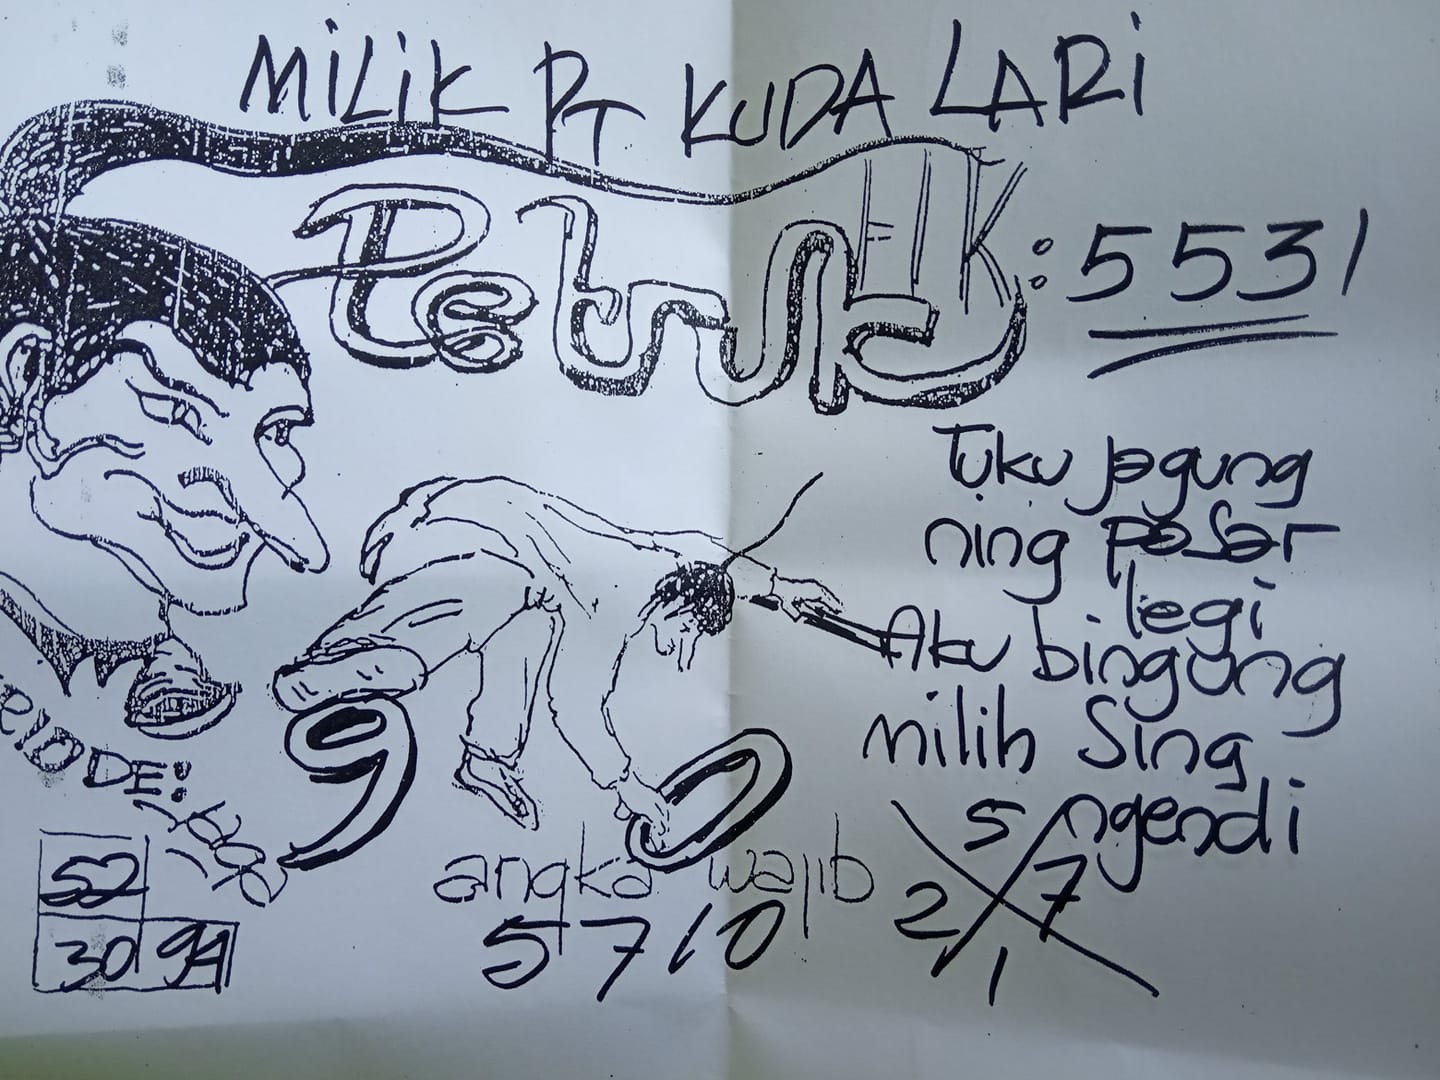 MILIK PT KUDA LARI
Petruk
HK : 5531
Tuku jagung
ning pasar
legi
Aku bingung
milih sing
ngendi
90
angka wajib
5710
5
2 7
1
52
30 94